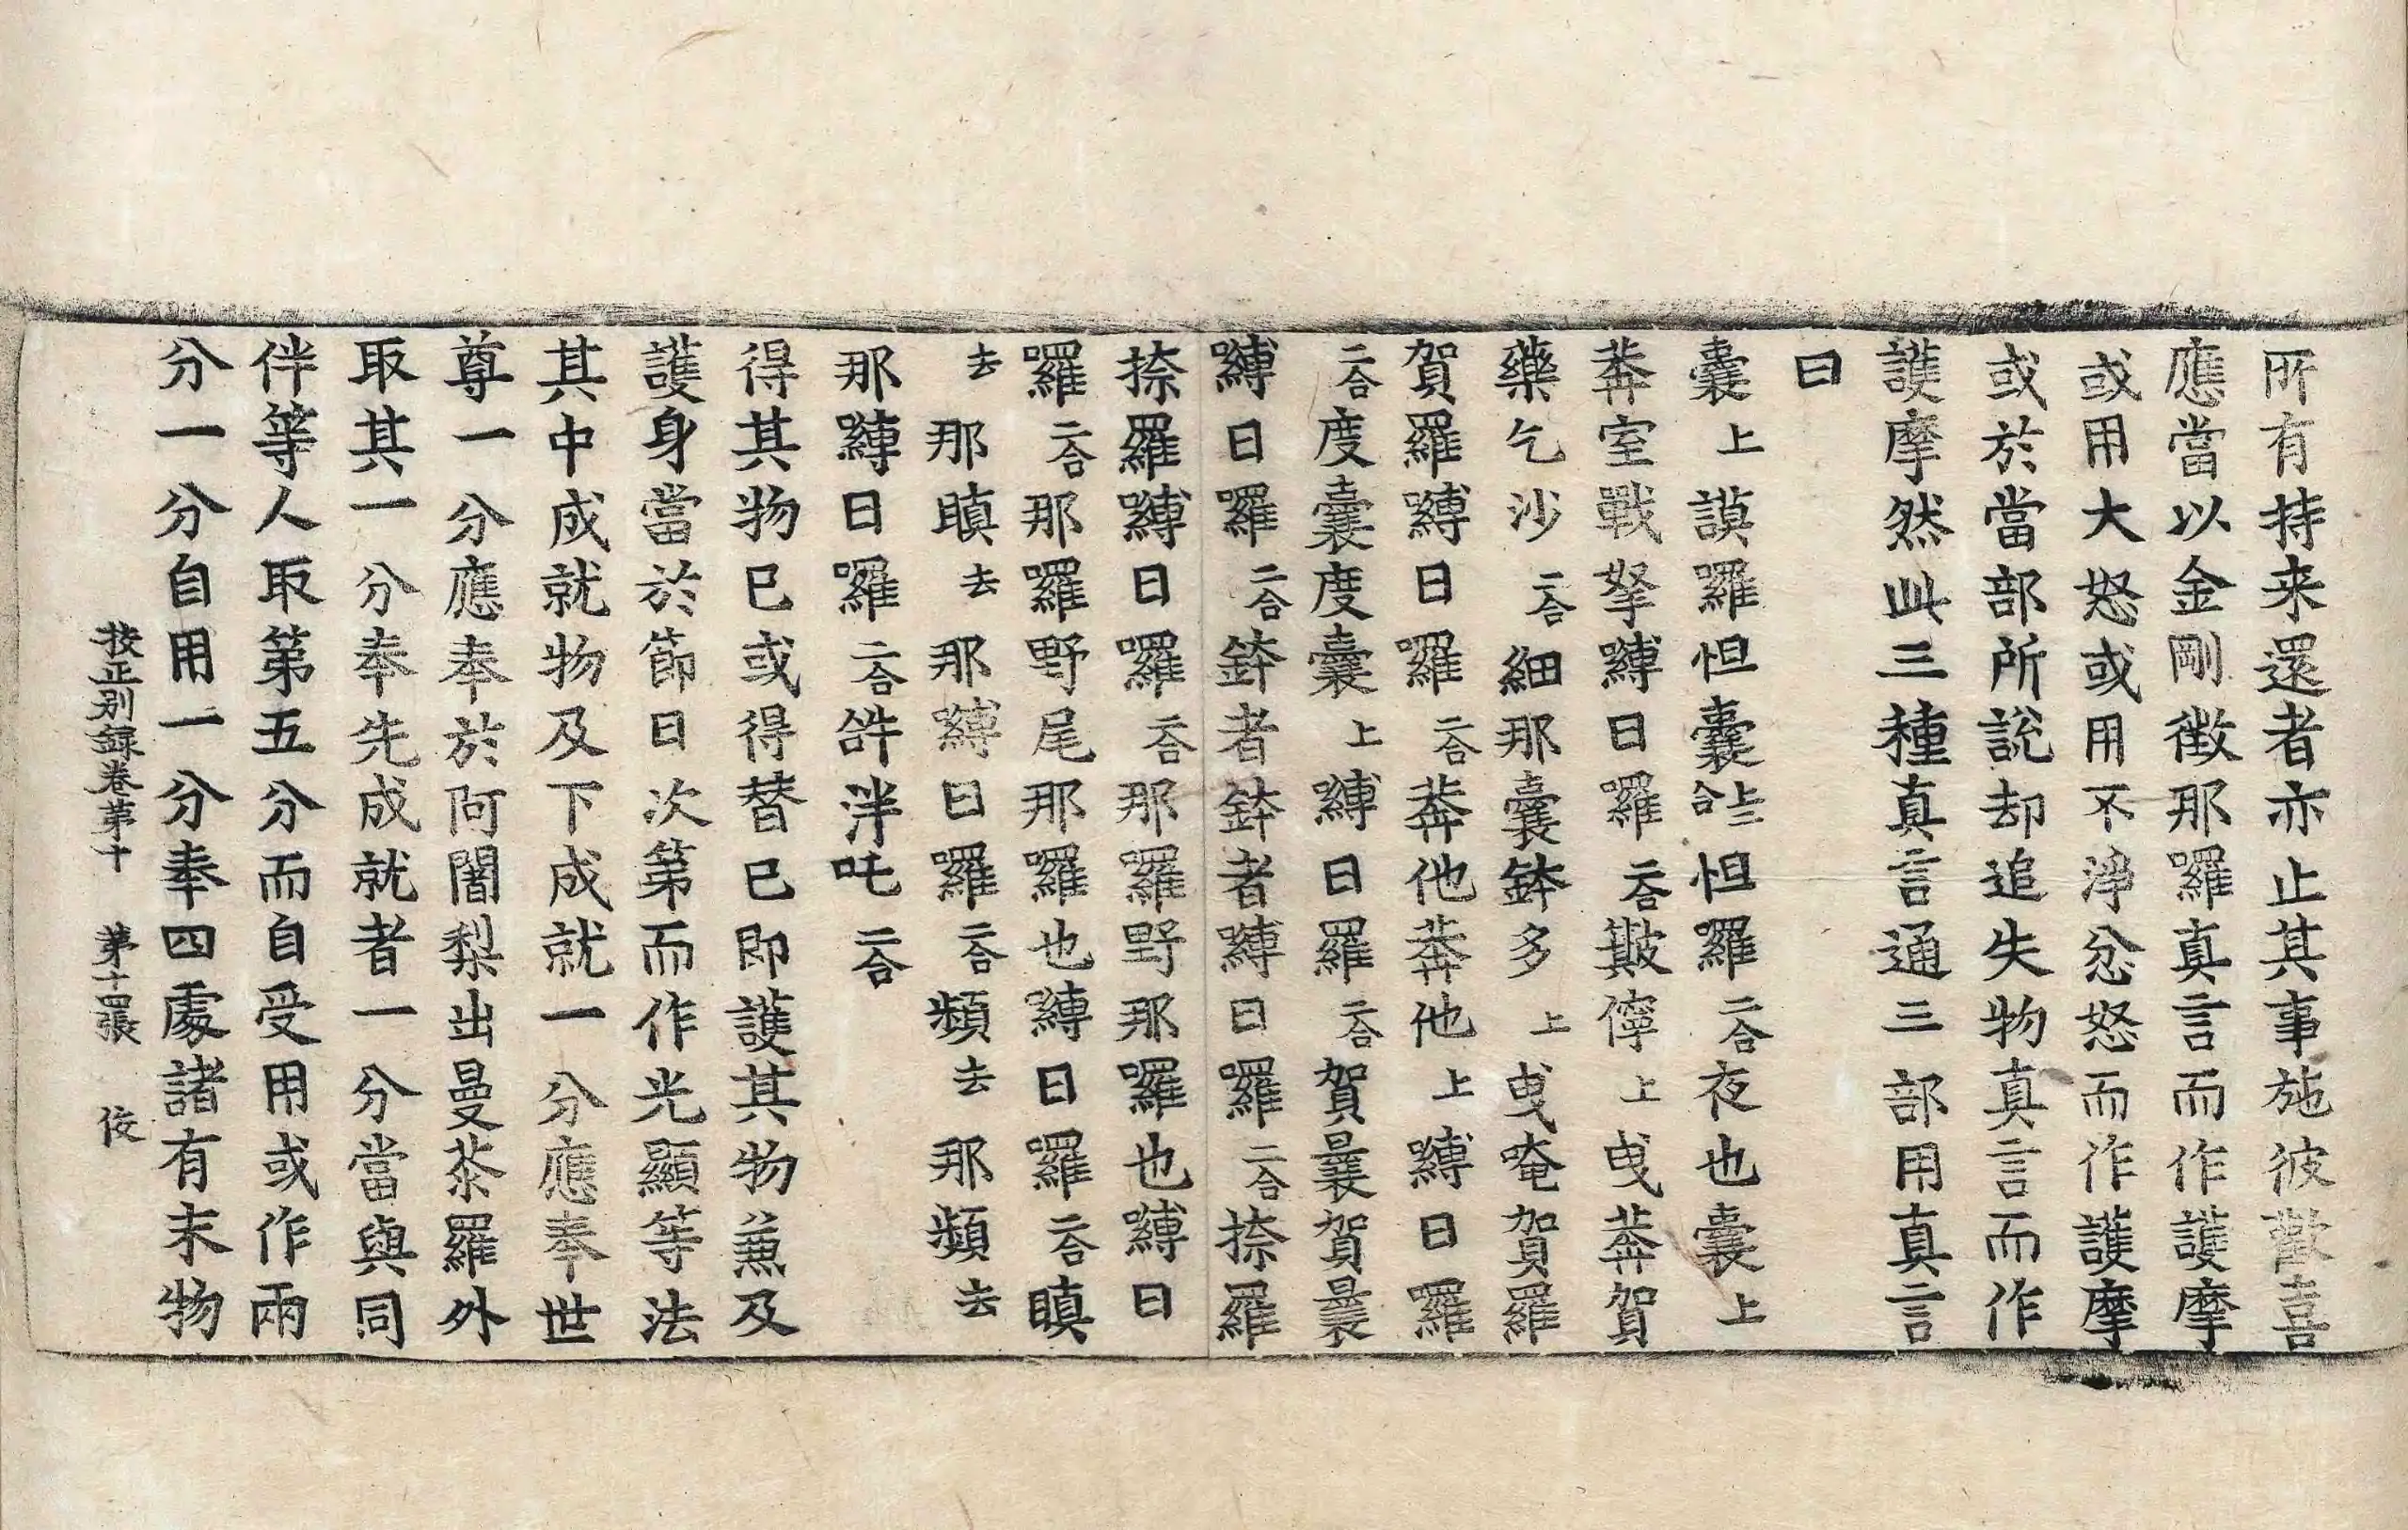 所有持来還者亦止其事施彼歡喜
應當以金剛徴那羅真言而作護摩
或用大怒或用不淨忿怒而作護摩
或於當部所說却追失物真言而作
護摩然此三種真言通三部用真言
曰
囊上謨羅怛囊二合上怛羅二合夜也囊上
莾室戰拏嚩日羅二合㿱儜上曳莾賀
藥乞沙二合細那囊鉢多上曳唵賀羅
賀羅嚩日囉二合莾他莾他上嚩日囉
二合度囊度囊上嚩日囉二合賀曩賀曩
嚩日囉二合鉢者鉢者嚩日囉二合捺羅
捺羅嚩日囉二合那囉野那囉也嚩日
囉二合那囉野尾那囉也嚩日囉二合瞋
去那瞋去那嚩日囉二合頻去那頻去
那嚩日囉二合𤙖泮吒二合
得其物已或得替已即護其物兼及
護身當於節日次第而作光顯等法
其中成就物及下成就一分應奉世
尊一分應奉於阿闍梨出曼荼羅外
取其一分奉先成就者一分當與同
伴等人取第五分而自受用或作兩
分一分自用一分奉四處諸有末物
挍正别録卷第十 第十四張 伎